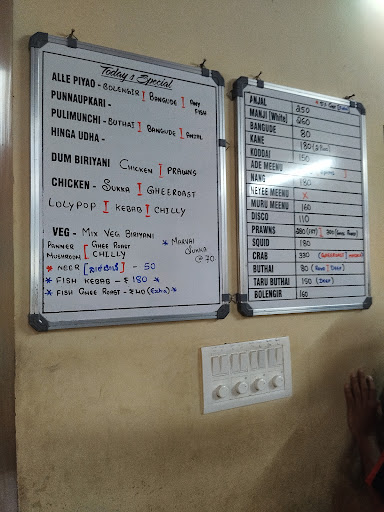 Today's Special
ALLE PIYAO - BOLENGIR I BANGUDE I ANY FISH
PUNNAUPKARI -
PULIMUNCHI - BUTHAI I BANGUDE I ANJAL
HINGA UDHA -
DUM BIRIYANI CHICKEN I PRAWNS
CHICKEN - SUKKA I GHEEROAST
LOLYPOP I KEBAB I CHILLY
VEG - MIX VEG BIRIYANI
PANNER GHEE ROAST
MUSHROOM CHILLY
* MARVAI SUKKA @ 70
* NEER - 50
* FISH KEBAB - ₹ 180 *
* FISH GHEE ROAST - ₹ 40 (Extra) *
ANJAL 250
MANJI [White] 260
BANGUDE 80
KANE 180
KODDAI 150
ADE MEENU
NANG 180
NEYEE MEENU X
MURU MEENU 160
DISCO 110
PRAWNS 280
SQUID 180
CRAB 330 (GHEEROAST)
BUTHAI 80 [Rava] [DEEP]
TARU BUTHAI 150 [DEEP]
BOLENGIR 160